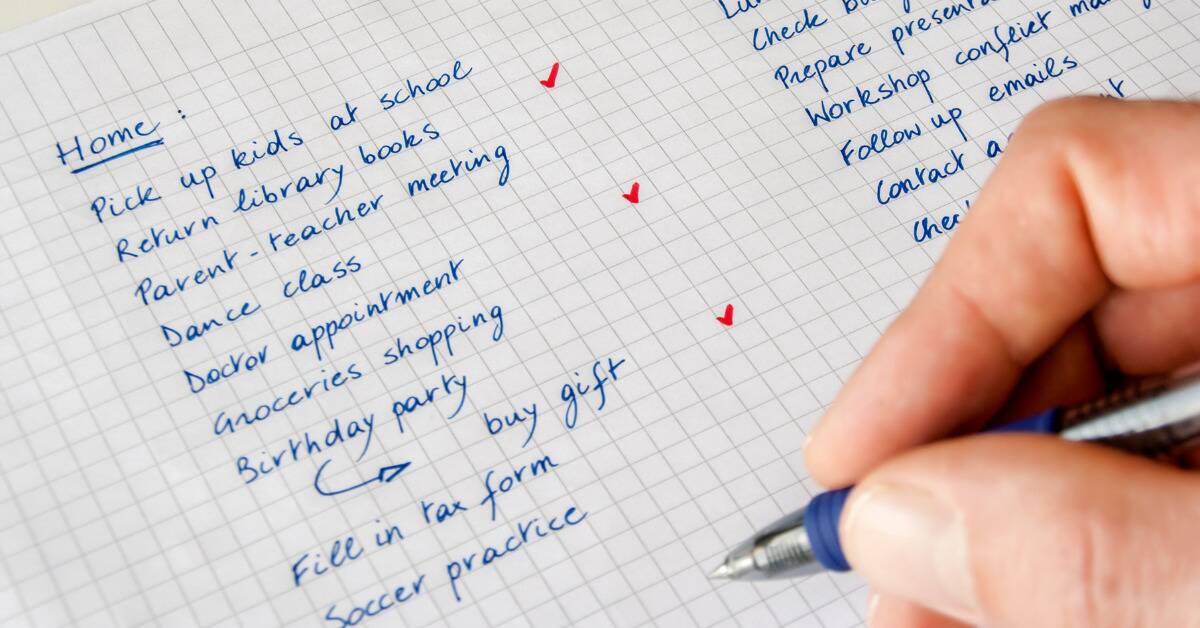 Home :
Pick up kids at school ✓
Return library books
Parent-teacher meeting ✓
Dance class
Doctor appointment
Groceries shopping ✓
Birthday party
buy gift
Fill in tax form
Soccer practice
Check
Prepare
Workshop conflict
Follow up emails
Contact